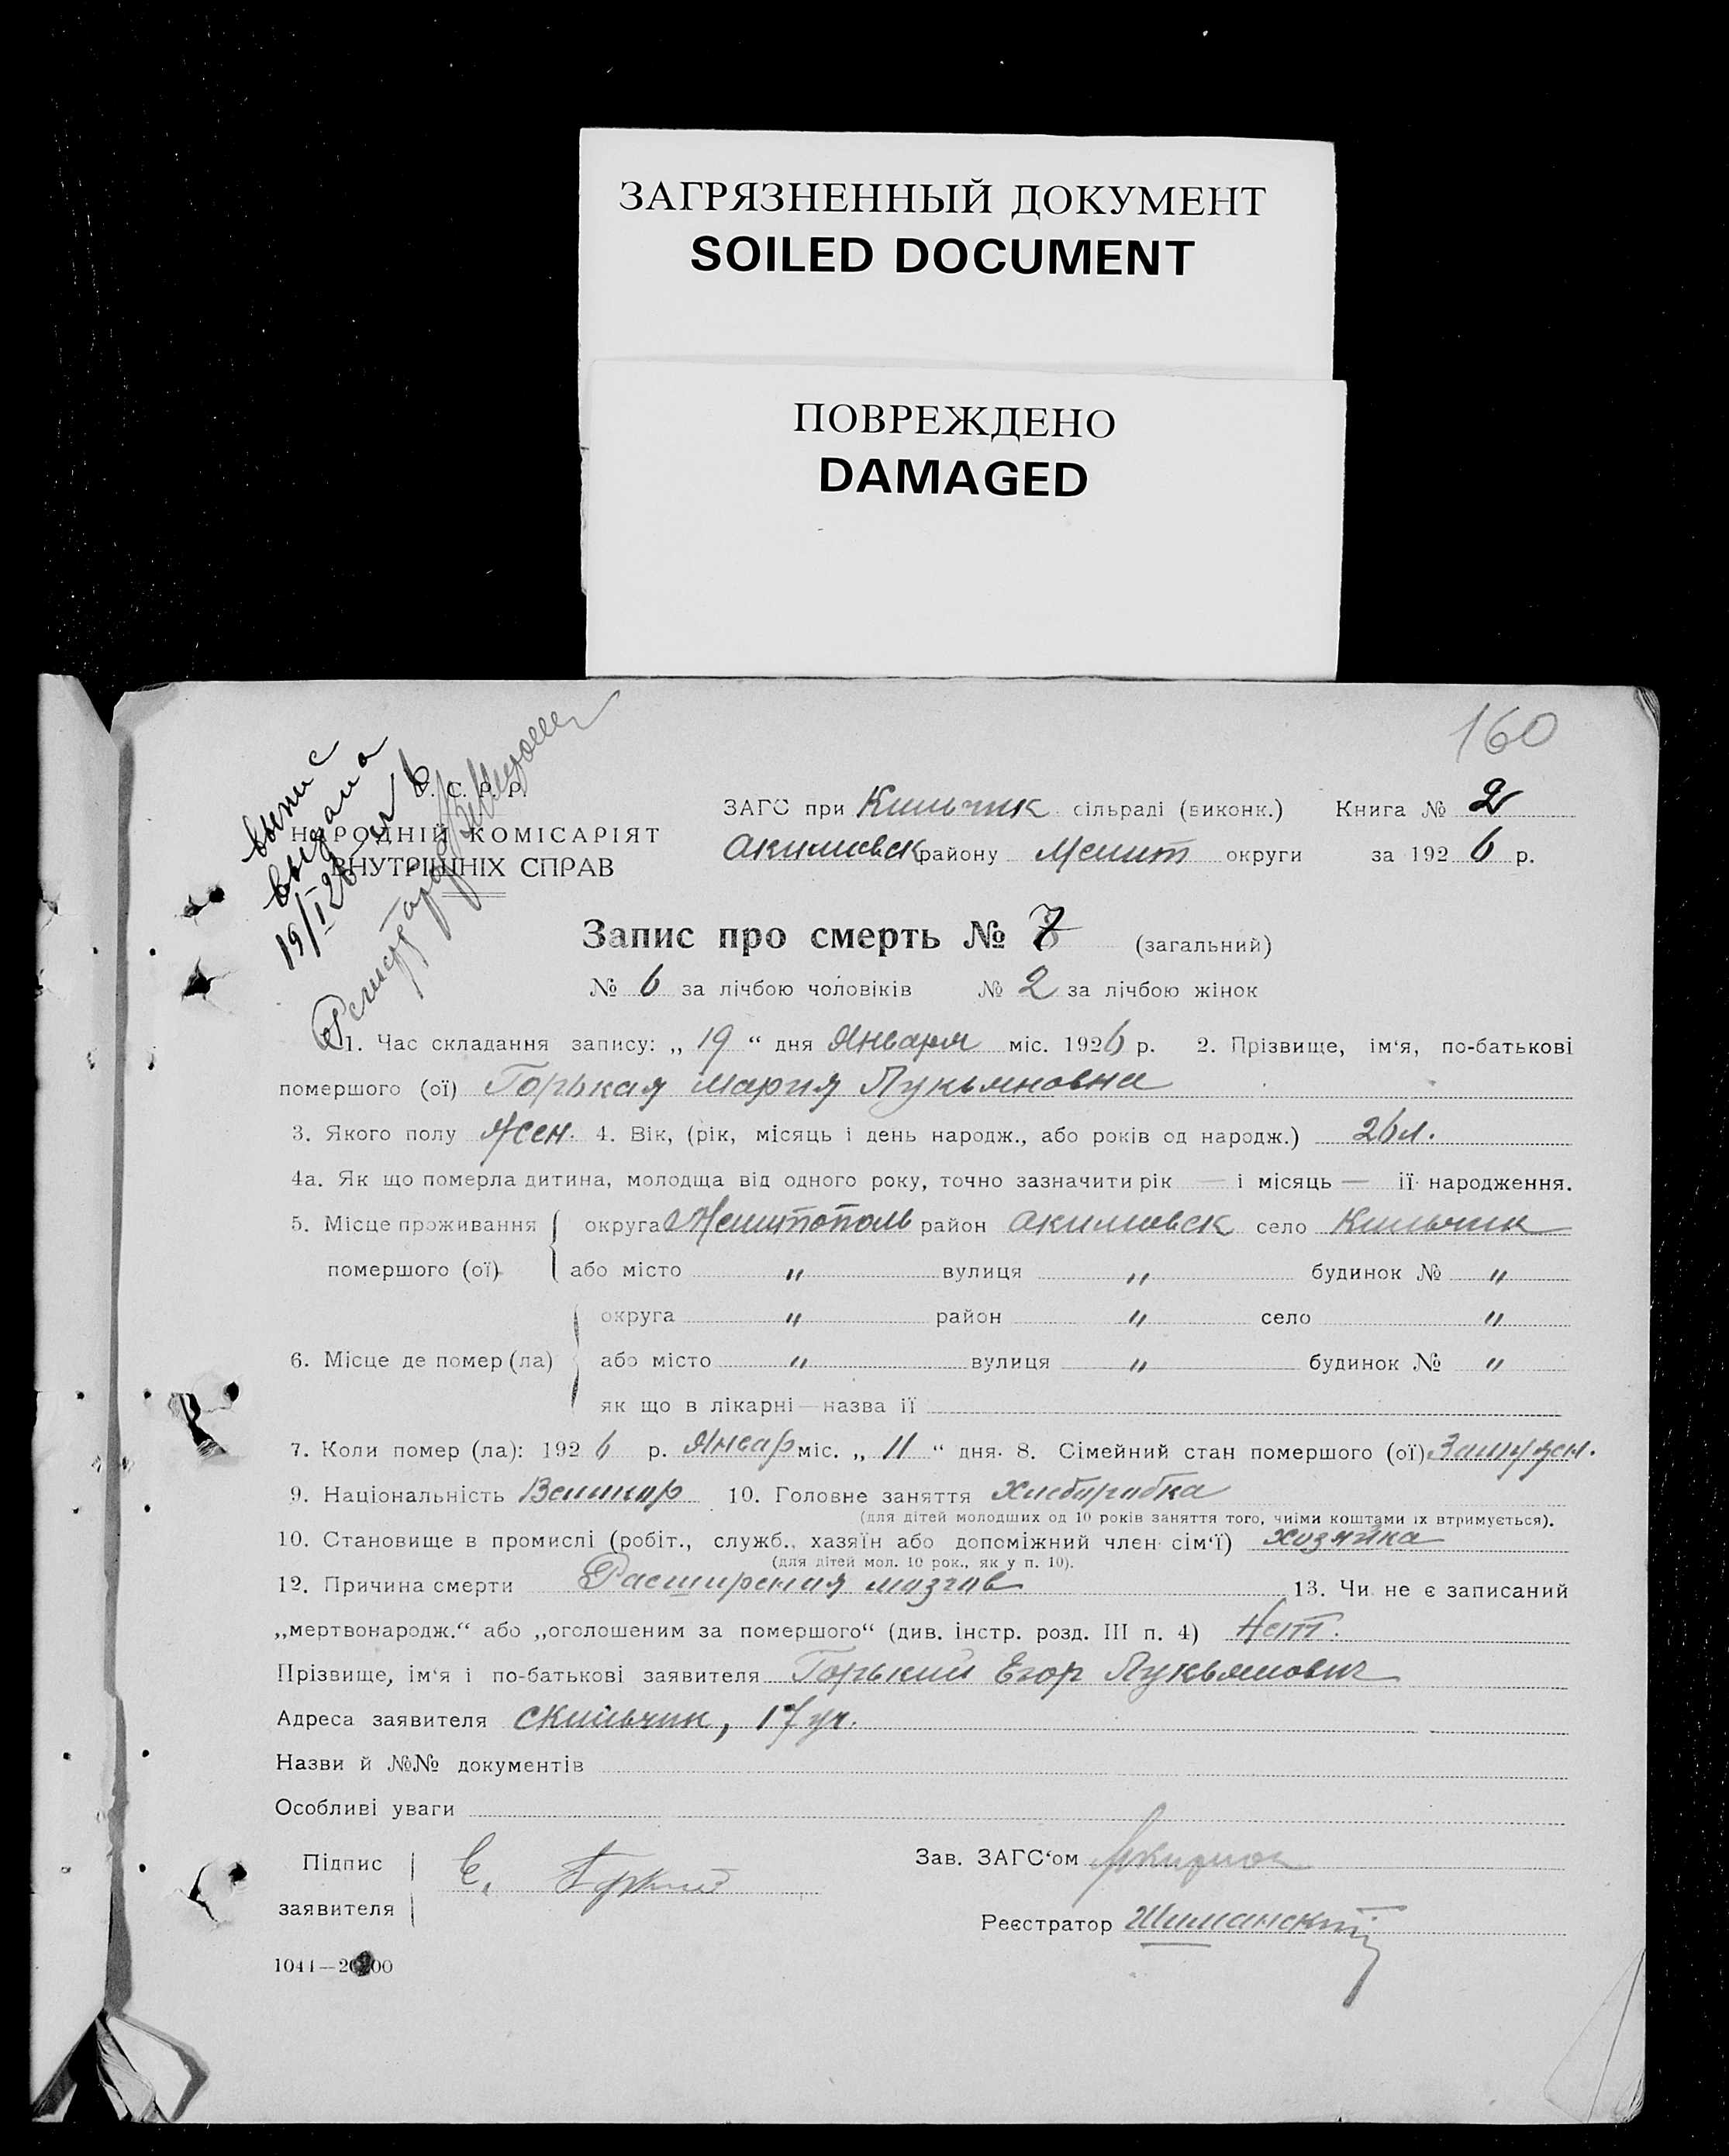 ЗАГРЯЗНЕННЫЙ ДОКУМЕНТ
SOILED DOCUMENT
ПОВРЕЖДЕНО
DAMAGED
160
выпис
выдана
19/I 26
У. С. Р. Р.
НАРОДНІЙ КОМІСАРІЯТ
ВНУТРІШНІХ СПРАВ
ЗАГС при Кильчик сільраді (виконк.) Книга № 2
Акимовск району Мелит округи за 1926 р.
Запис про смерть № 7 (загальний)
№ 6 за лічбою чоловіків № 2 за лічбою жінок
1. Час складання запису: „ 19 “ дня Января міс. 1926 р. 2. Прізвище, ім‘я, по-батькові
помершого (ої) Горькая Мария Лукьяновна
3. Якого полу жен. 4. Вік, (рік, місяць і день народж., або років од народж.) 26 л.
4а. Як що померла дитина, молодща від одного року, точно зазначити рік — і місяць — її народження.
5. Місце проживання округа Мелитополь район Акимовск село Кильчик
помершого (ої) або місто " вулиця " будинок № "
округа " район " село "
6. Місце де помер (ла) або місто " вулиця " будинок № "
як що в лікарні—назва її
7. Коли помер (ла): 1926 р. Январ міс. „ 11 “ дня. 8. Сімейний стан помершого (ої) Замужен.
9. Національність Великор 10. Головне заняття Хлеборобка
(для дітей молодших од 10 років заняття того, чиїми коштами їх втримується).
10. Становище в промислі (робіт., служб., хазяїн або допоміжний член сім‘ї) хозяйка
(для дітей мол. 10 рок., як у п. 10).
12. Причина смерти Расширения мозгов 13. Чи не є записаний
„мертвонародж.“ або „оголошеним за помершого“ (див. інстр. розд. III п. 4) Нет.
Прізвище, ім‘я і по-батькові заявителя Горький Егор Лукьянович
Адреса заявителя с Кильчик, 17 уч.
Назви й №№ документів
Особливі уваги
Підпис Е. Горкий Зав. ЗАГС‘ом
заявителя
Реєстратор Шиманский